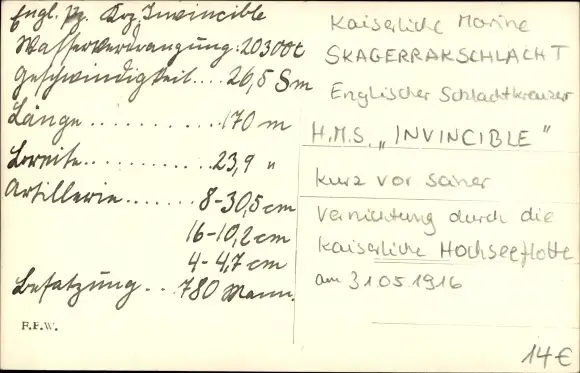 Engl. Pz. Krz. Invincible
Wasserverdrängung: 20300t
Geschwindigkeit.... 26,5 Sm
Länge............170 m
Breite............23,9 "
Artillerie.......8-30,5 cm
16-10,2 cm
4-4,7 cm
Besatzung...780 Mann.
R.F.W.
Kaiserliche Marine
SKAGERRAKSCHLACHT
Englischer Schlachtkreuzer
H.M.S. „INVINCIBLE"
kurz vor seiner
Vernichtung durch die
Kaiserliche Hochseeflotte
am 31051916
14€